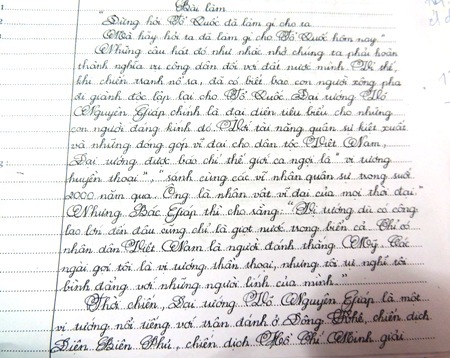 Bài làm
"Đừng hỏi Tổ Quốc đã làm gì cho ta
Mà hãy hỏi ta đã làm gì cho Tổ Quốc hôm nay"
Những câu hát đó như nhắc nhở chúng ta phải hoàn
thành nghĩa vụ công dân đối với đất nước mình. Vì thế,
khi chiến tranh nổ ra, đã có biết bao con người xông pha
đi giành độc lập lại cho Tổ Quốc. Đại tướng Võ
Nguyên Giáp chính là đại diện tiêu biểu cho những
con người đáng kính đó. Với tài năng quân sự kiệt xuất
và những đóng góp vĩ đại cho dân tộc Việt Nam,
Đại tướng được báo chí thế giới ca ngợi là "vị tướng
huyền thoại", "sánh cùng các vĩ nhân quân sự trong suốt
2000 năm qua. Ông là nhân vật vĩ đại của mọi thời đại."
Nhưng Bác Giáp thì cho rằng: "Vị tướng dù có công
lao lớn đến đâu cũng chỉ là giọt nước trong biển cả. Chỉ có
nhân dân Việt Nam là người đánh thắng Mỹ. Các
ngài gọi tôi là vị tướng thần thoại, nhưng tôi tự nghĩ tôi
bình đẳng với những người lính của mình."
Thời chiến, Đại tướng Võ Nguyên Giáp là một
vị tướng nổi tiếng với trận đánh ở Đông Khê, chiến dịch
Điện Biên Phủ, chiến dịch Hồ Chí Minh giải